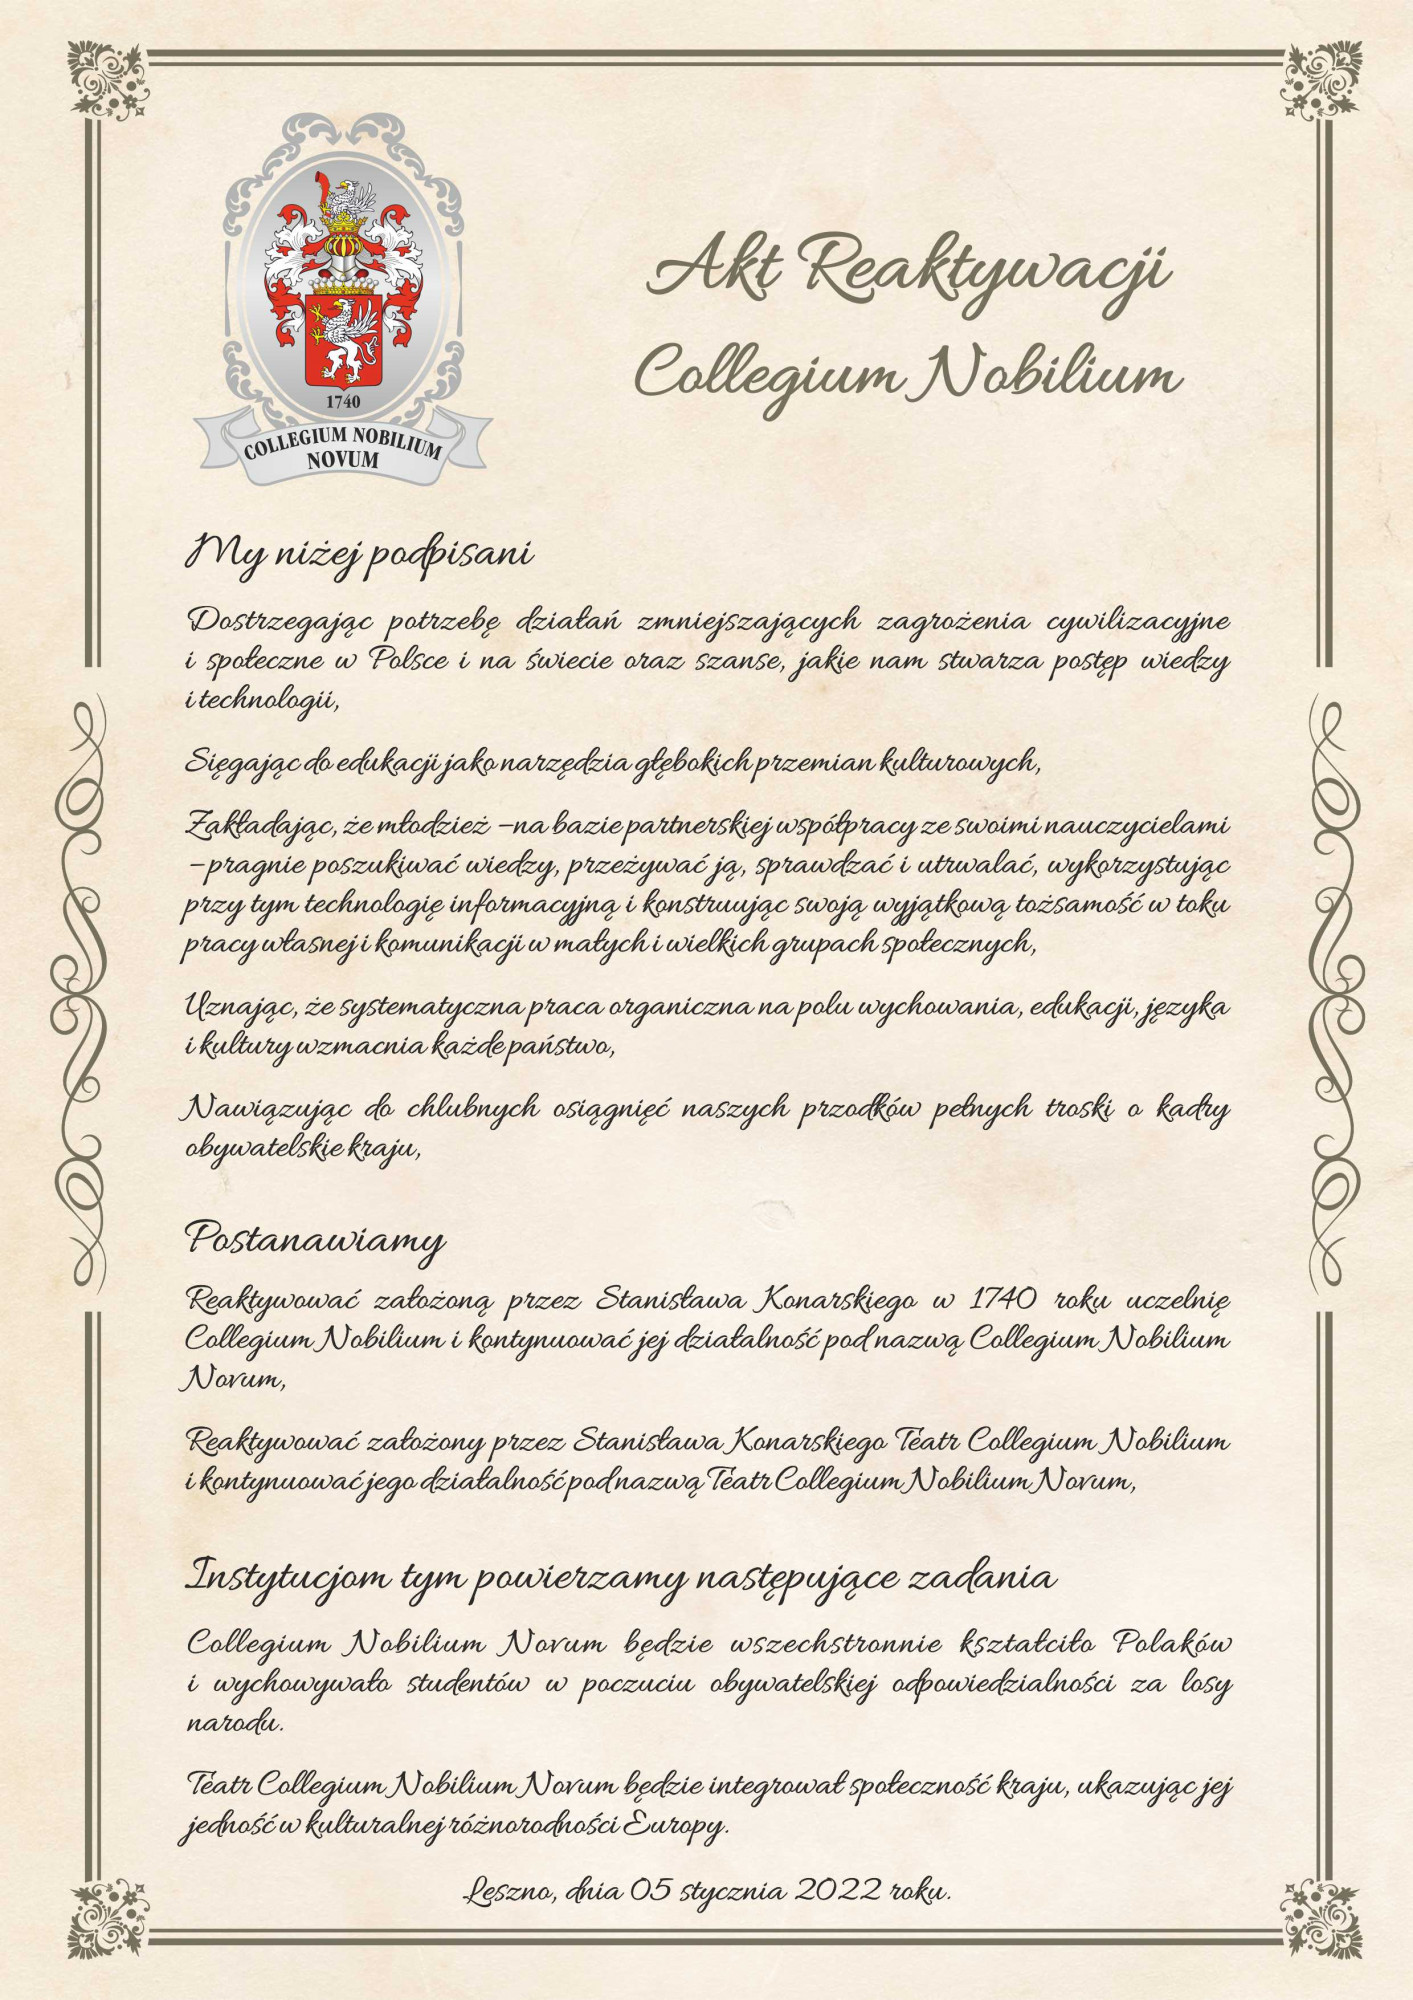 1740
COLLEGIUM NOBILIUM
NOVUM
Akt Reaktywacji
Collegium Nobilium
My niżej podpisani
Dostrzegając potrzebę działań zmniejszających zagrożenia cywilizacyjne
i społeczne w Polsce i na świecie oraz szanse, jakie nam stwarza postęp wiedzy
i technologii,
Sięgając do edukacji jako narzędzia głębokich przemian kulturowych,
Zakładając, że młodzież –na bazie partnerskiej współpracy ze swoimi nauczycielami
–pragnie poszukiwać wiedzy, przeżywać ją, sprawdzać i utrwalać, wykorzystując
przy tym technologię informacyjną i konstruując swoją wyjątkową tożsamość w toku
pracy własnej i komunikacji w małych i wielkich grupach społecznych,
Uznając, że systematyczna praca organiczna na polu wychowania, edukacji, języka
i kultury wzmacnia każde państwo,
Nawiązując do chlubnych osiągnięć naszych przodków pełnych troski o kadry
obywatelskie kraju,
Postanawiamy
Reaktywować założoną przez Stanisława Konarskiego w 1740 roku uczelnię
Collegium Nobilium i kontynuować jej działalność pod nazwą Collegium Nobilium
Novum,
Reaktywować założony przez Stanisława Konarskiego Teatr Collegium Nobilium
i kontynuować jego działalność pod nazwą Teatr Collegium Nobilium Novum,
Instytucjom tym powierzamy następujące zadania
Collegium Nobilium Novum będzie wszechstronnie kształciło Polaków
i wychowywało studentów w poczuciu obywatelskiej odpowiedzialności za losy
narodu.
Teatr Collegium Nobilium Novum będzie integrował społeczność kraju, ukazując jej
jedność w kulturalnej różnorodności Europy.
Leszno, dnia 05 stycznia 2022 roku.